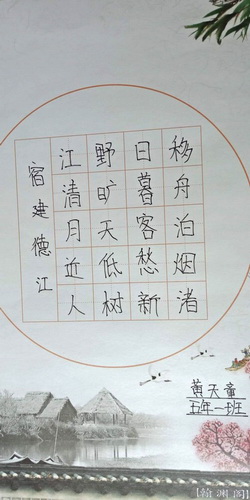 移舟泊烟渚
日暮客愁新
野旷天低树
江清月近人
宿建德江
黄天童
五年一班
翰渊阁